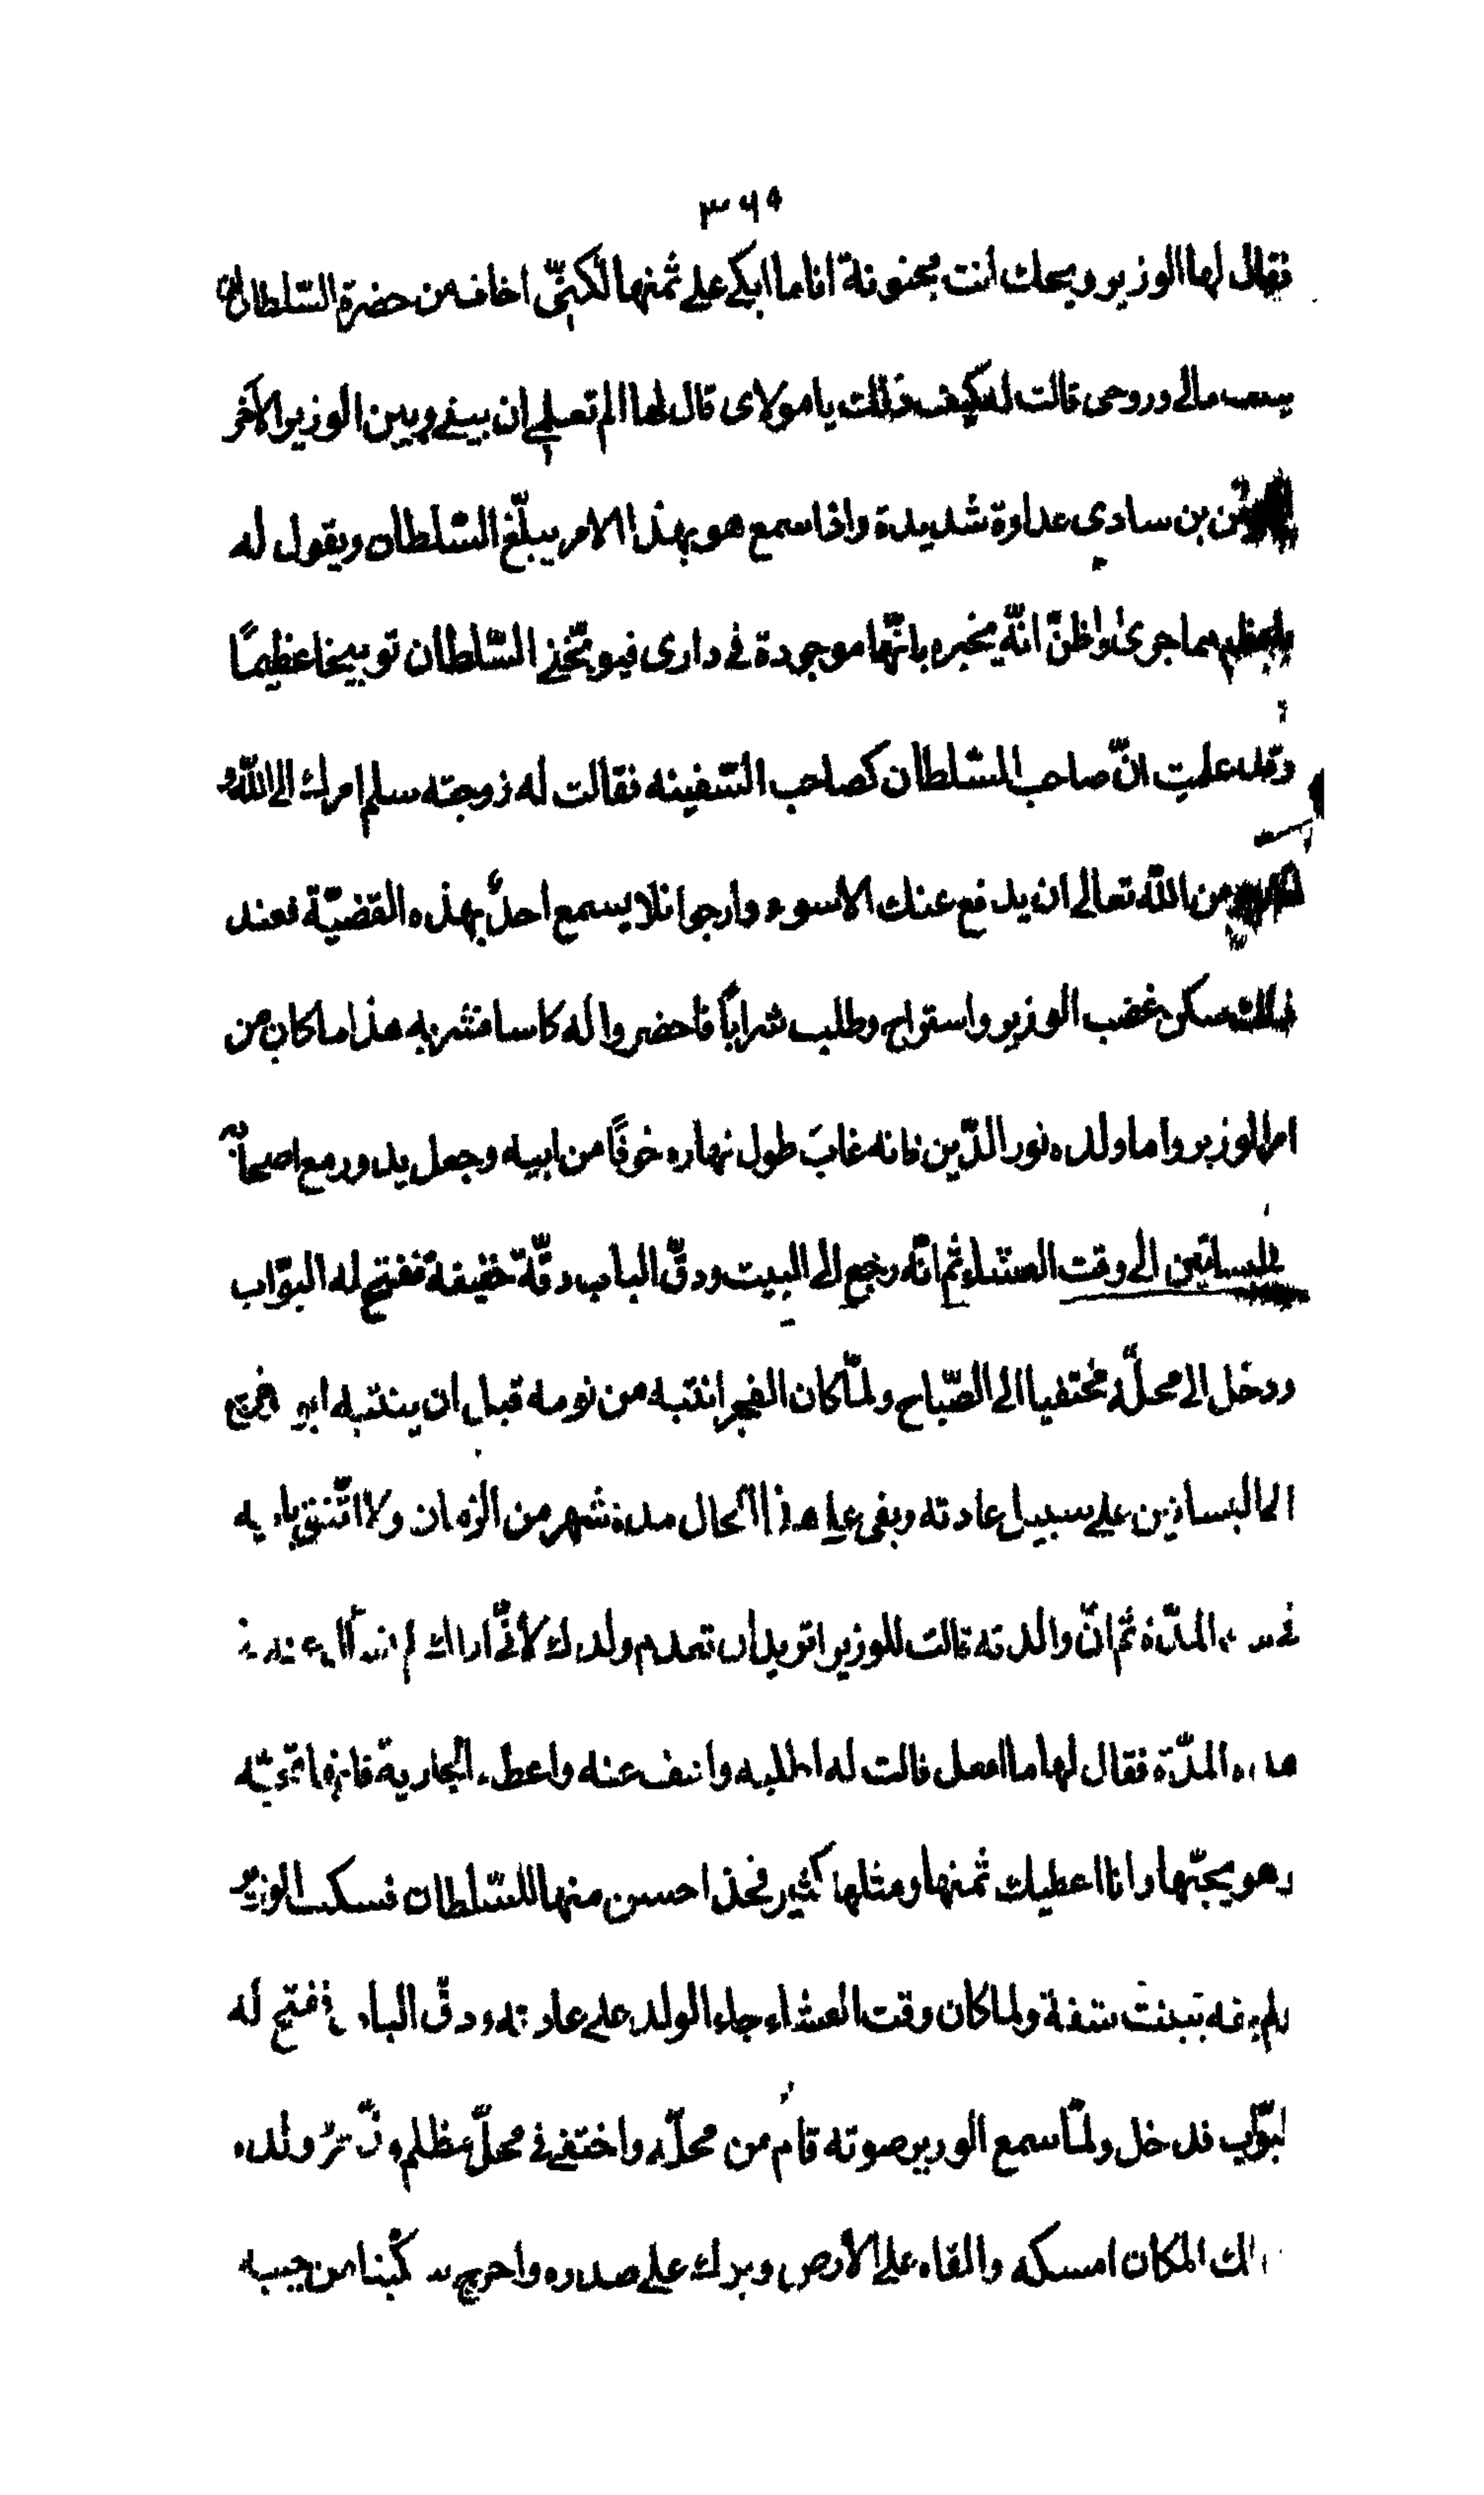 ٣٦٥
فقال لها الوزير ويحك انت مجنونة انا ما ابكي على ثمنها لكنّى اخاف من حضرة السّلطان
مالي وروحى قالت له كيف ذلك يا مولاى قال لها الم تعلمي ان بيني وبين الوزير الآخر
بن ساوي عداوة شديدة واذا سمع هو بهذا الامر يبلّغ السّلطان ويقول له
بما جرى واظنّ انّه يخبره بانّها موجودة في دارى فيوبّخني السّلطان توبيخا عظيمًا
وقد علمت انّ صاحب السّلطان كصاحب السّفينه فقالت له زوجته سلم امرك الى اللّه
من اللّه تعالى ان يدفع عنك الاسوء وارجو ان لا يسمع احدٌ بهذه القضيّة فعند
ذلك سكن غضب الوزير واستراح وطلب شرابًا فاحضروا له كاسا فشربه هذا ما كان من
امر الوزير واما ولده نور الدّين فانه غابَ طول نهاره خوفًا من ابيه وجعل يدور مع اصحابه
بالبساتين الى وقت العشاء ثم انّه رجع الى البيت ودقّ الباب دقّة خفيفة ففتح له البوّاب
ودخل الى محلّه مختفيا الى الصّباح ولمّا كان الفجر انتبه من نومه قبل ان ينتبه ابوه فخرج
الى البساتين على سبيل عادته وبقى على هذا الحال مدة شهر من الزمان ولا التقى بابيه
في هذه المدّة ثم انّ والدته قالت للوزير اتريد ان تعدم ولدك لانّى اراك لم
هذه المدّة فقال لها ما افعل قالت له اطلبه واعف عنه واعطه الجارية فانها تحبّه
وهو يحبّها وانا اعطيك ثمنها ومثلها كثير فخذ احسن منها للسّلطان فسكت الوزير
ولم يفه ببنت شفة ولما كان وقت العشاء جاء الولد على عادته ودقّ الباب ففتح له
البوّاب فدخل ولمّا سمع الوزير صوته قام من محلّه واختفى في محلّ مظلم ولده
ذلك المكان امسكه والقاه على الارض وبرك على صدره واخرج سكّينا من جيبه